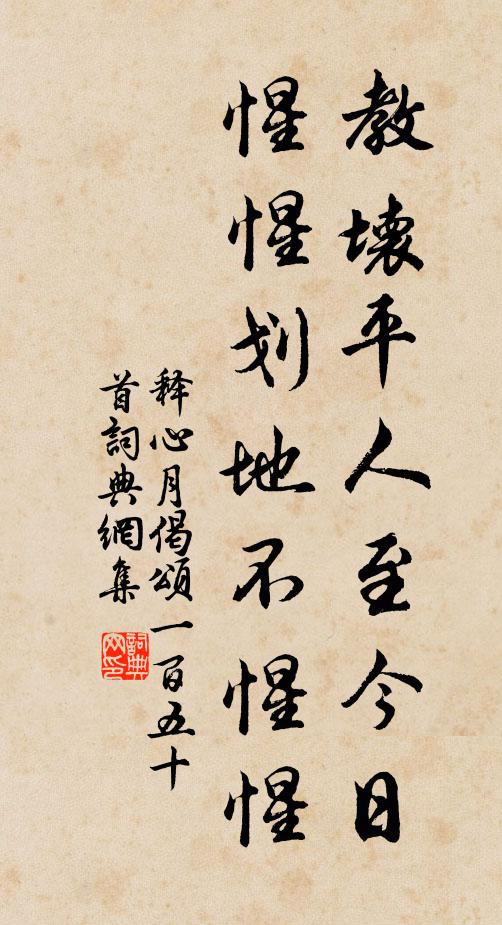 教壊平人至今日
惺惺划地不惺惺
释心月偈頌一百五十
首詞典網集
詞典网印